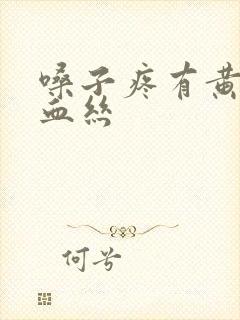 嗓子疼有黄
血丝
何兮